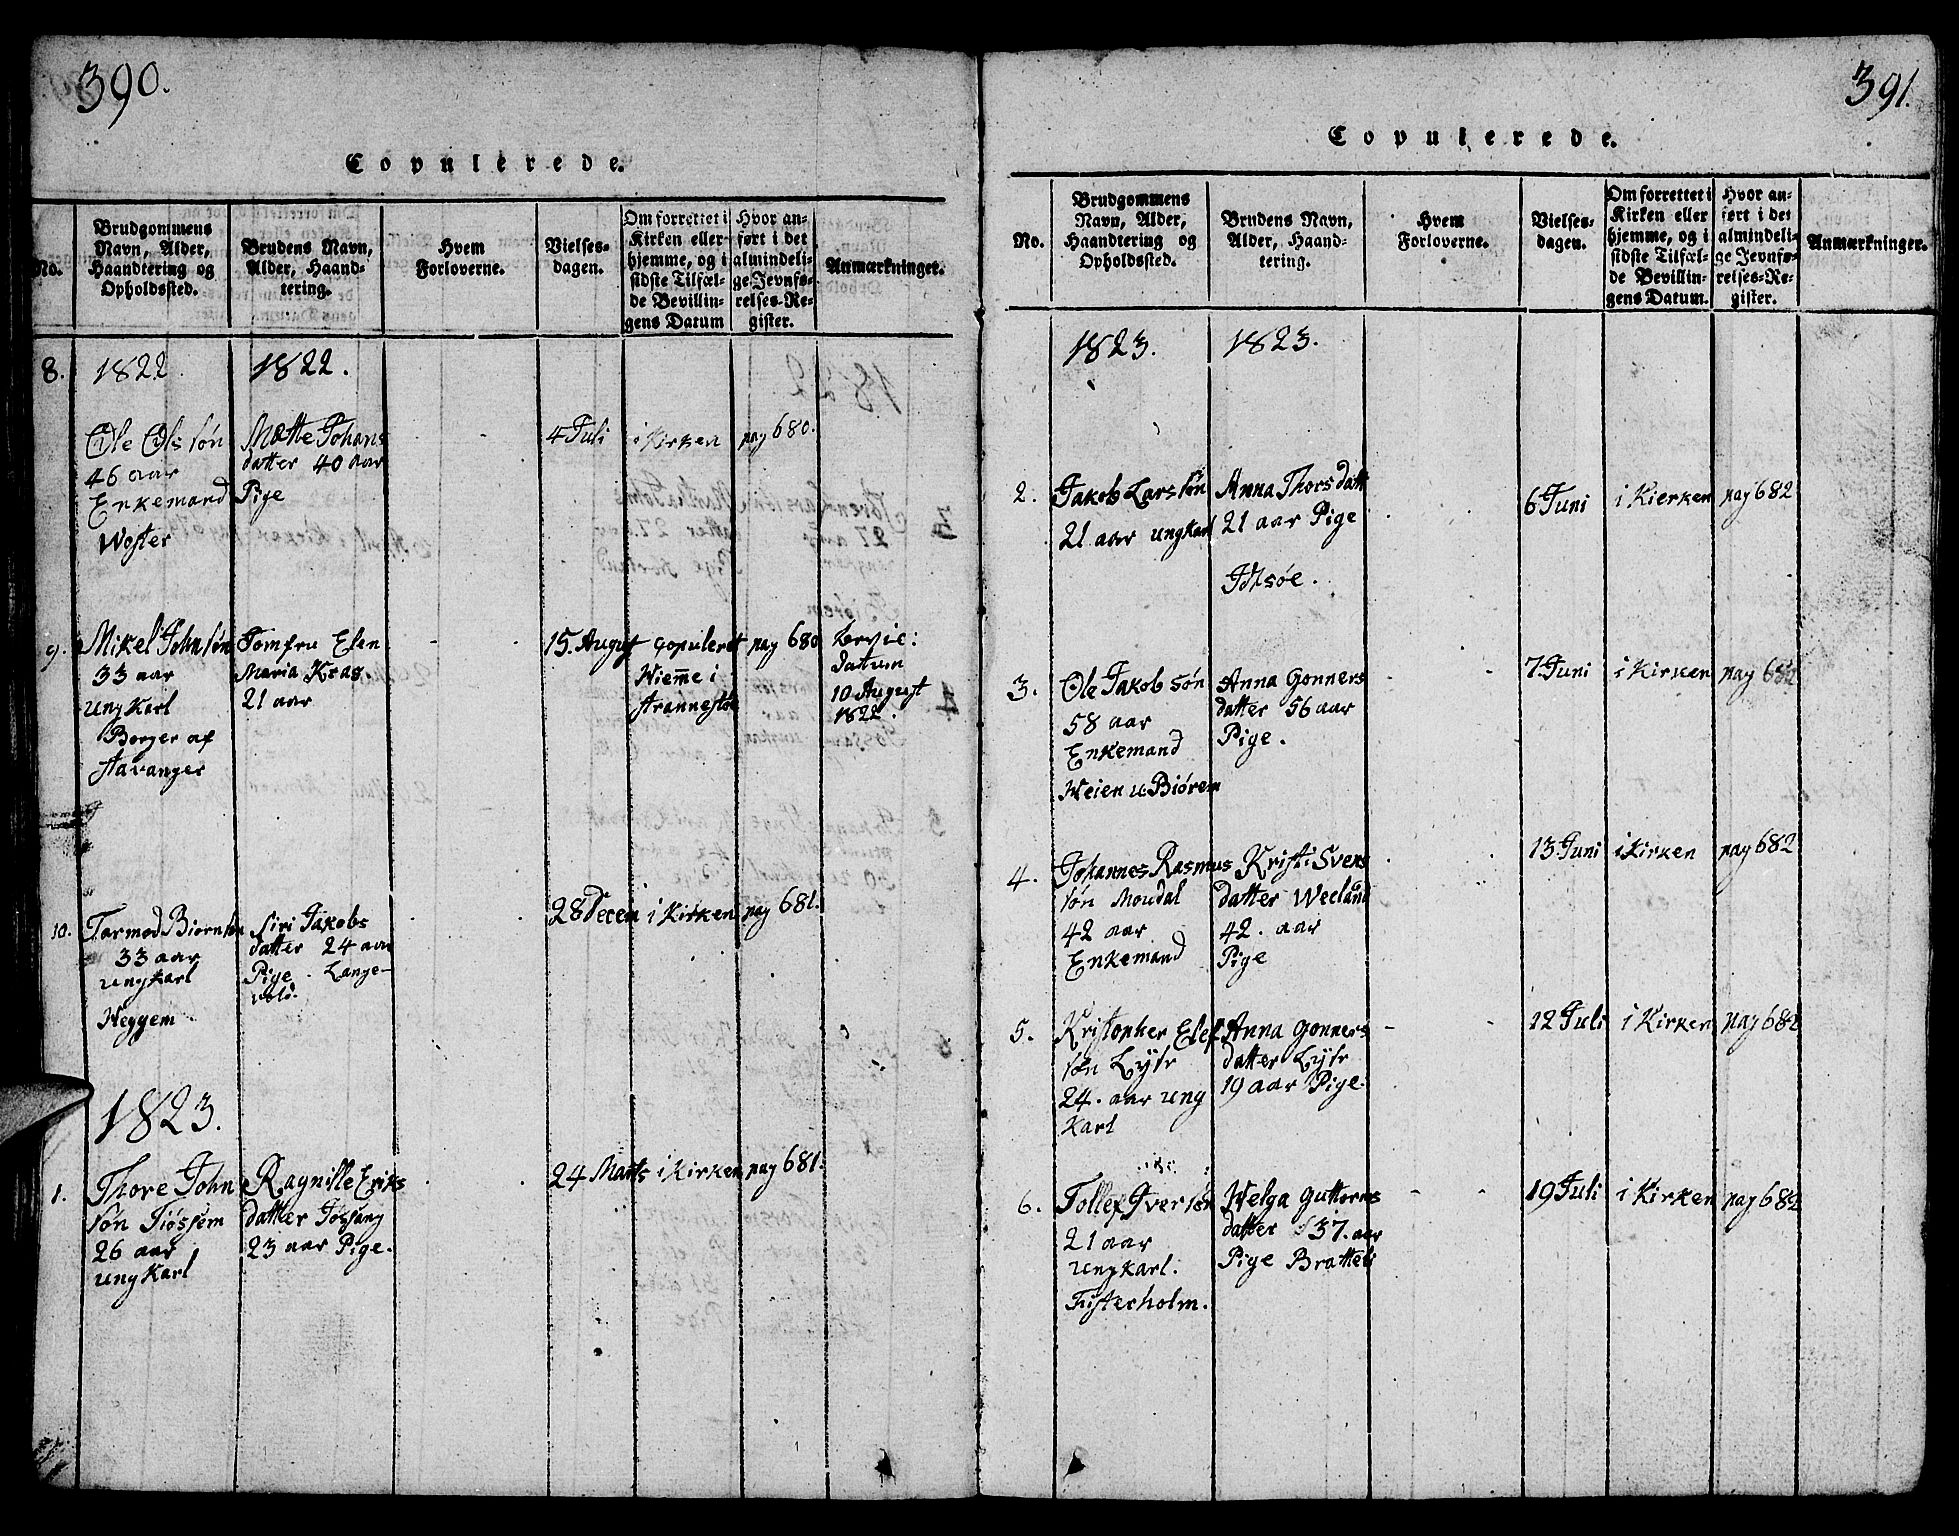 390.
Copulerede.
No.
Brudgommens
Navn, Alder,
Haandtering og
Opholdssted.
Brudens Navn,
Alder, Haand-
tering.
Hvem
Forloverne.
Vielses-
dagen.
Om forrettet i
Kirken eller
hjemme, og i
sidste Tilfæl-
de Bevillin-
gens Datum
Hvor an-
ført i det
almindeli-
ge Jevnfø-
relses-Re-
gister.
Anmærkninger.
8. 1822. 1822.
Ole Olssøn
46 aar
Enkemand
Woster
Mætte Johans
datter 40 aar
Pige
4 Juli
i Kirken
pag 680.
9. Mikel Johnsøn
33 aar
ungkarl
Borger af
Stavanger
Jomfru Elen
Maria Krag
21 aar
15. August
copuleret
Hiemme i
pag 680
datum
10 August
1822.
10. Tormod Biørnsøn
33 aar
ungkarl
Heggem
Siri Jakobs
datter 24 aar
Pige. Lange-
vold.
28 Decem
i Kirken
pag 681.
1823.
1. Thore John
søn Tiøssem
26 aar
ungkarl
Ragnille Eriks
datter Jøssang
23 aar Pige.
24 Marts
i Kirken
pag 681.
391.
Copulerede.
No.
Brudgommens
Navn, Alder,
Haandtering og
Opholdssted.
Brudens Navn,
Alder, Haand-
tering.
Hvem
Forloverne.
Vielses-
dagen.
Om forrettet i
Kirken eller
hjemme, og i
sidste Tilfæl-
de Bevillin-
gens Datum.
Hvor an-
ført i det
almindeli-
ge Jevnfø-
relses-Re-
gister.
Anmærkninger.
1823. 1823.
2. Jakob Larssøn
21 aar ungkarl
Anna Thorsdatt
21 aar Pige
Idsøe.
6 Juni
i Kierken
pag 682
3. Ole Jakobsøn
58 aar
Enkemand
Heien u Biørem
Anna Gonners
datter 56 aar
Pige.
7 Juni
i Kirken
pag 682
4. Johannes Rasmus
søn Moudal
42 aar
Enkemand
Kristi Svens
datter Weeland
42. aar
Pige
13 Juni
i Kirken
pag 682
5. Kristopher Elef
søn Lysr
24. aar ung
karl
Anna Gonners
datter Lysr
19 aar Pige.
12 Juli
i Kirken
pag 682
6. Tollef Iversøn
21 aar
ungkarl.
Fisterholm.
Helga Guttorms
datter 37. aar
Pige Bratteli
19 Juli
i Kirken
pag 682